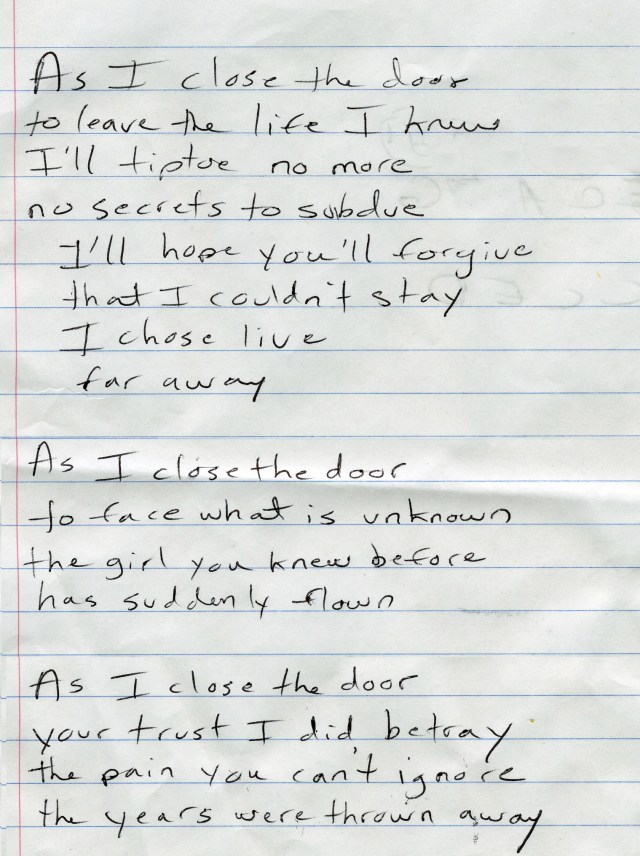 As I close the door
to leave the life I knew
I'll tiptoe no more
no secrets to subdue
I'll hope you'll forgive
that I couldn't stay
I chose live
far away
As I close the door
to face what is unknown
the girl you knew before
has suddenly flown
As I close the door
your trust I did betray
the pain you can't ignore
the years were thrown away